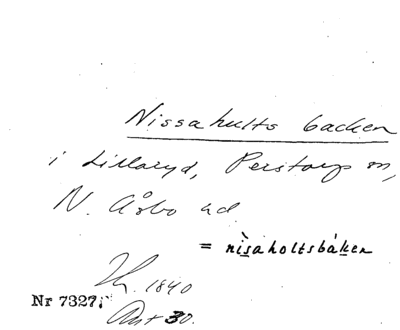 Nissahults backen
i Lillaryd, Perstorp sn,
N. Åsbo hd
= nisaholtsbaken
1840
Nr 7327;
30.